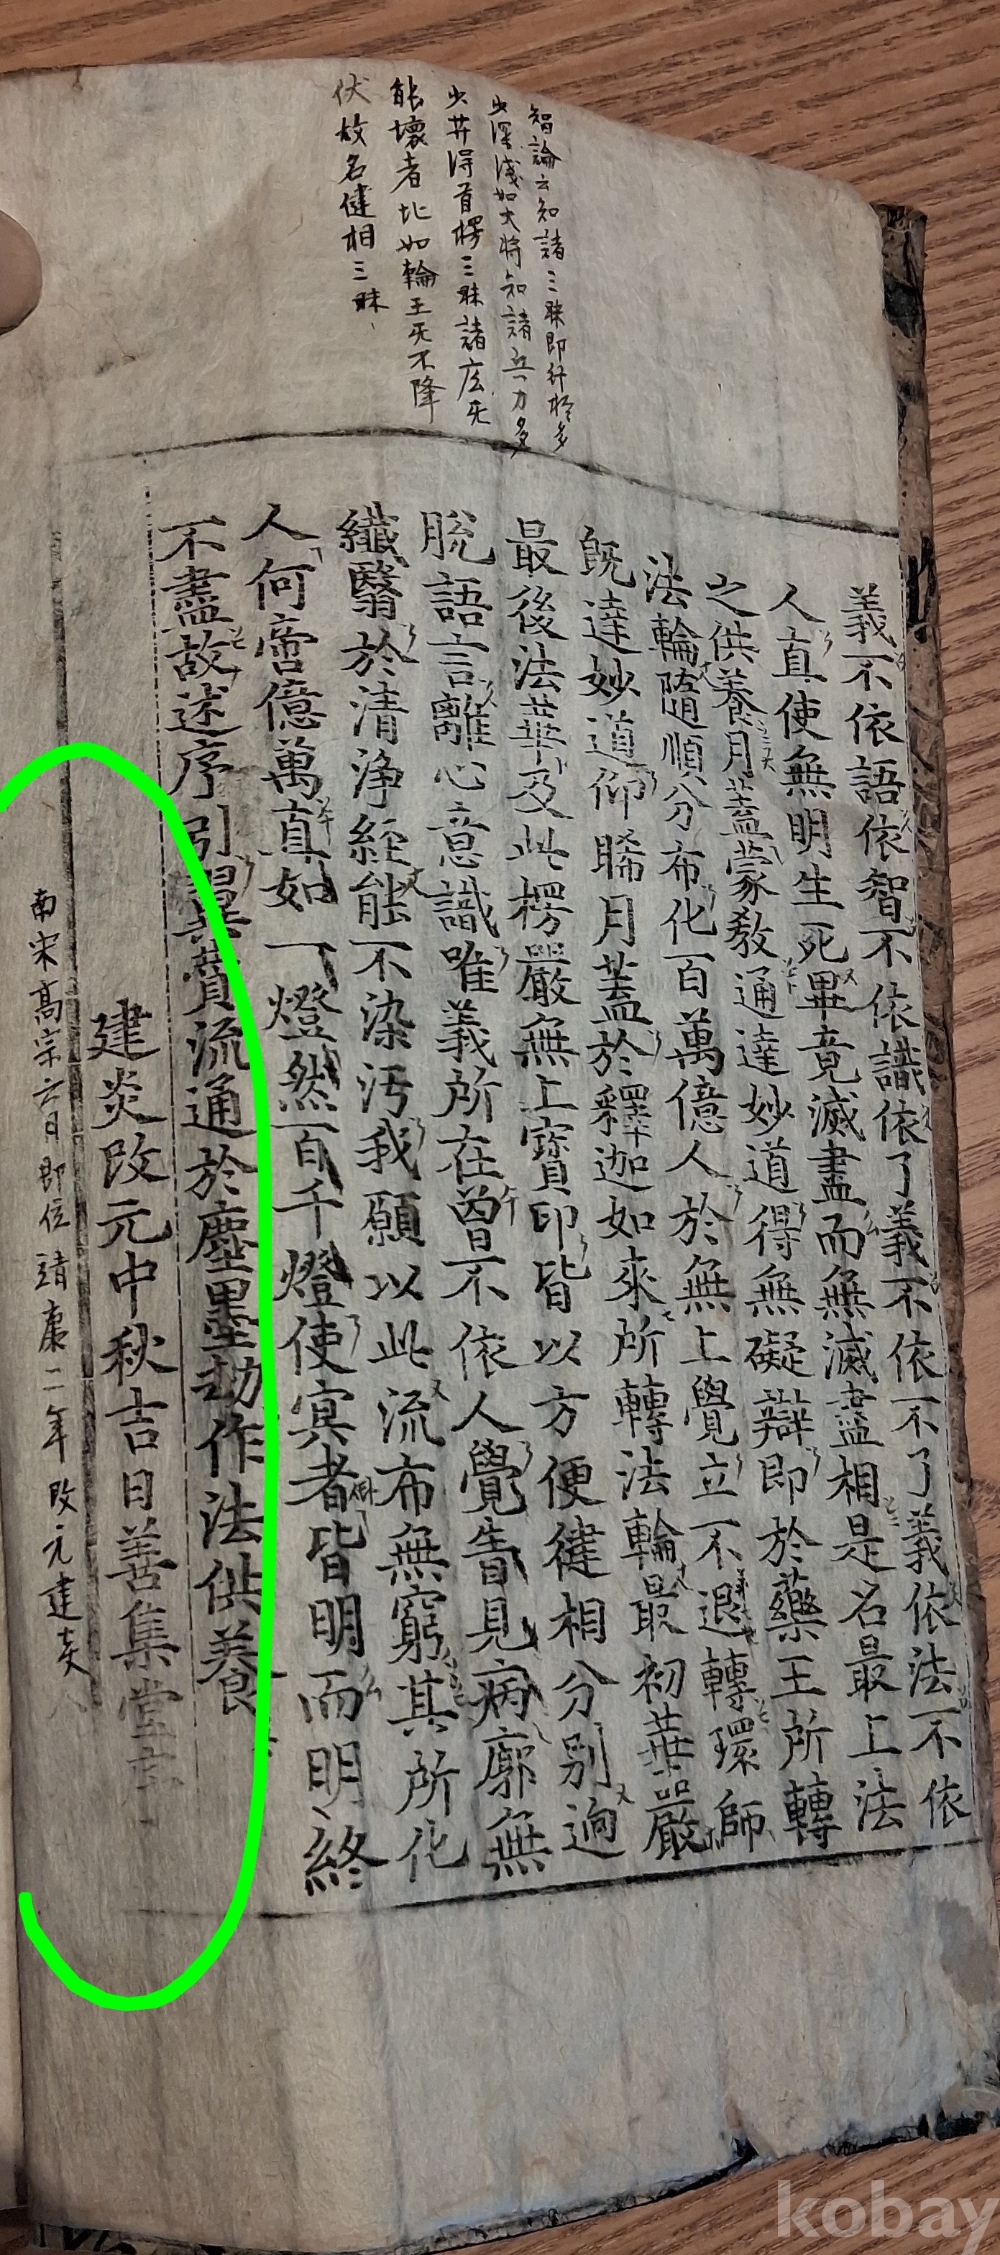 智論云知諸三昧即行相多
少深淺如大將知諸兵力多
少并得首楞三昧諸魔无
能壞者比如輪王无不降
伏故名健相三昧
義不依語依智不依識依了義不依不了義依法不依
人直使無明生死畢竟滅盡而無滅盡相是名最上法
之供養月蓋蒙教通達妙道得無礙辯即於藥王所轉
法輪隨順分布化百萬億人於無上覺立不退轉環師
既達妙道仰睎月蓋於釋迦如來所轉法輪最初華嚴
最後法華及此楞嚴無上寶印皆以方便健相分別逈
脫語言離心意識唯義所在曾不依人覺眚見病廓無
纖瞖於清淨經能不染汚我願以此流布無窮其所化
人何啻億萬直如一燈然百千燈使冥者皆明而明終
不盡故述序引冀賫流通於塵墨劫作法供養
建炎改元中秋吉日善集堂
南宋高宗六日即位靖康二年改元建炎
kobay